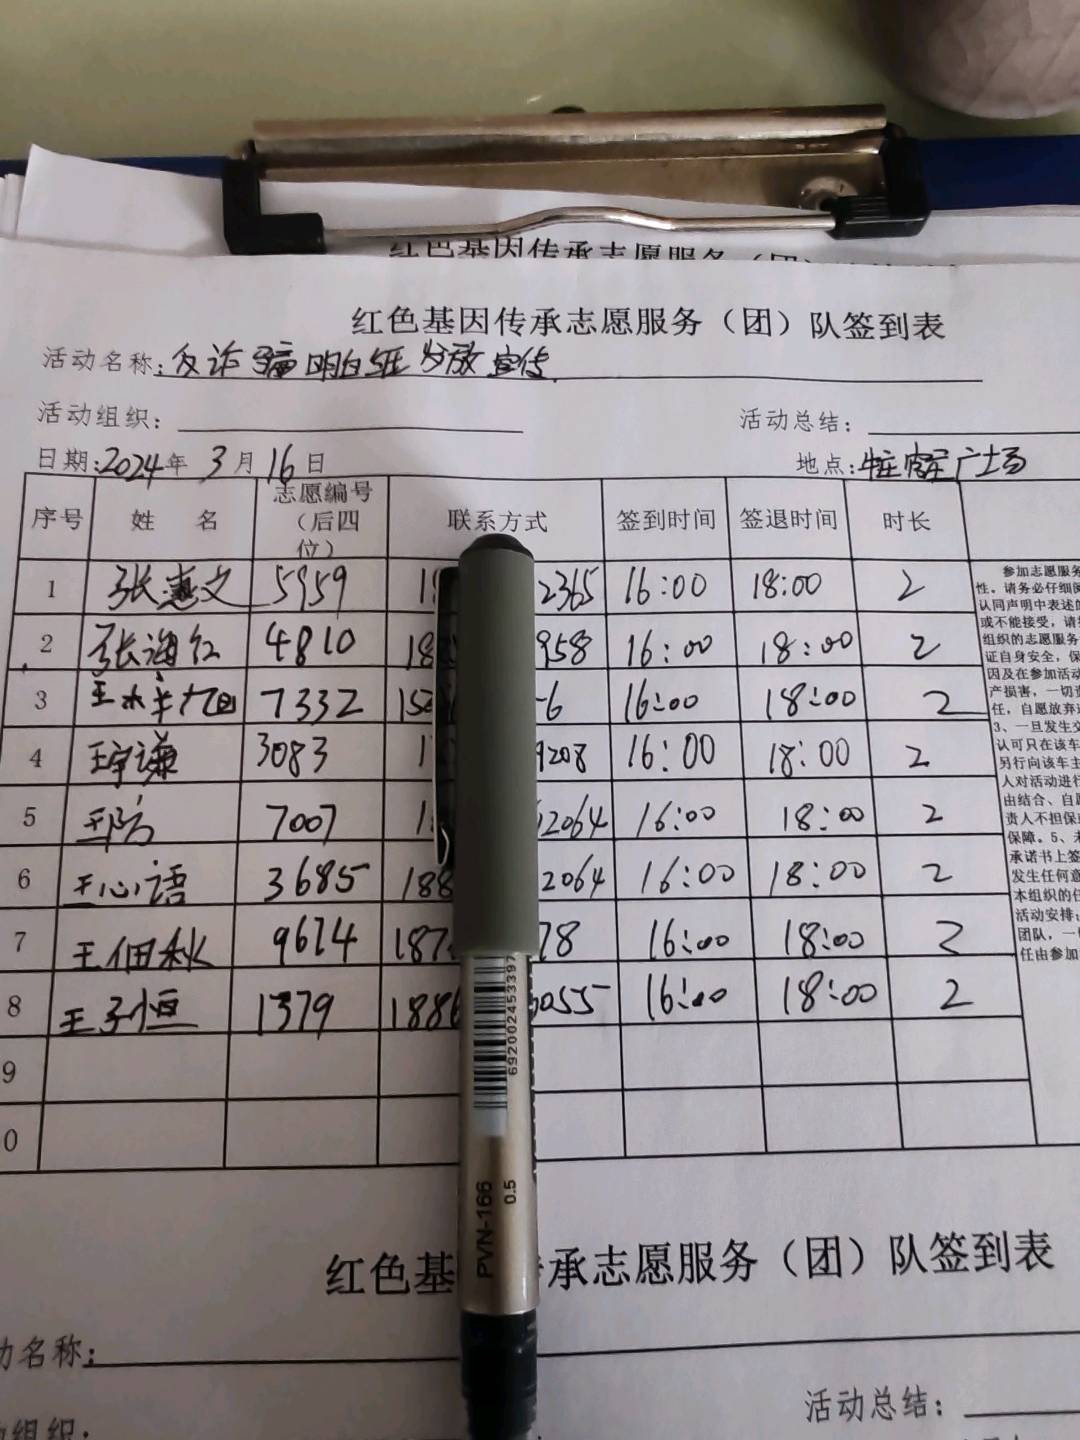 红色基因传承志愿服务（团）
红色基因传承志愿服务（团）队签到表
活动名称：反诈骗明白纸发放宣传
活动组织：
活动总结：
日期：2024年3月16日
地点：广场
序号 姓名 志愿编号（后四位） 联系方式 签到时间 签退时间 时长
1 张惠文 5959 2365 16:00 18:00 2
2 张海红 4810 18 958 16:00 18:00 2
3 王 7332 15 6 16:00 18:00 2
4 王宇谦 3083 1 9208 16:00 18:00 2
5 7007 1 2064 16:00 18:00 2
6 王心语 3685 188 2064 16:00 18:00 2
7 王佃秋 9614 187 78 16:00 18:00 2
8 王子恒 1379 1886 0055 16:00 18:00 2
9
0
参加志愿服务
性。请务必仔细阅
认同声明中表述的
或不能接受，请
组织的志愿服务
证自身安全，保
因及在参加活动
产损害，一切责
任，自愿放弃
3、一旦发生交
认可只在该车
另行向该车主
人对活动进行
由结合、自愿
责人不担保
保障。5、未
承诺书上签
发生任何意
本组织的任
活动安排；
团队，一
任由参加
6920024533971
PVN-166
0.5
红色基 承志愿服务（团）队签到表
动名称：
活动总结：
组织：